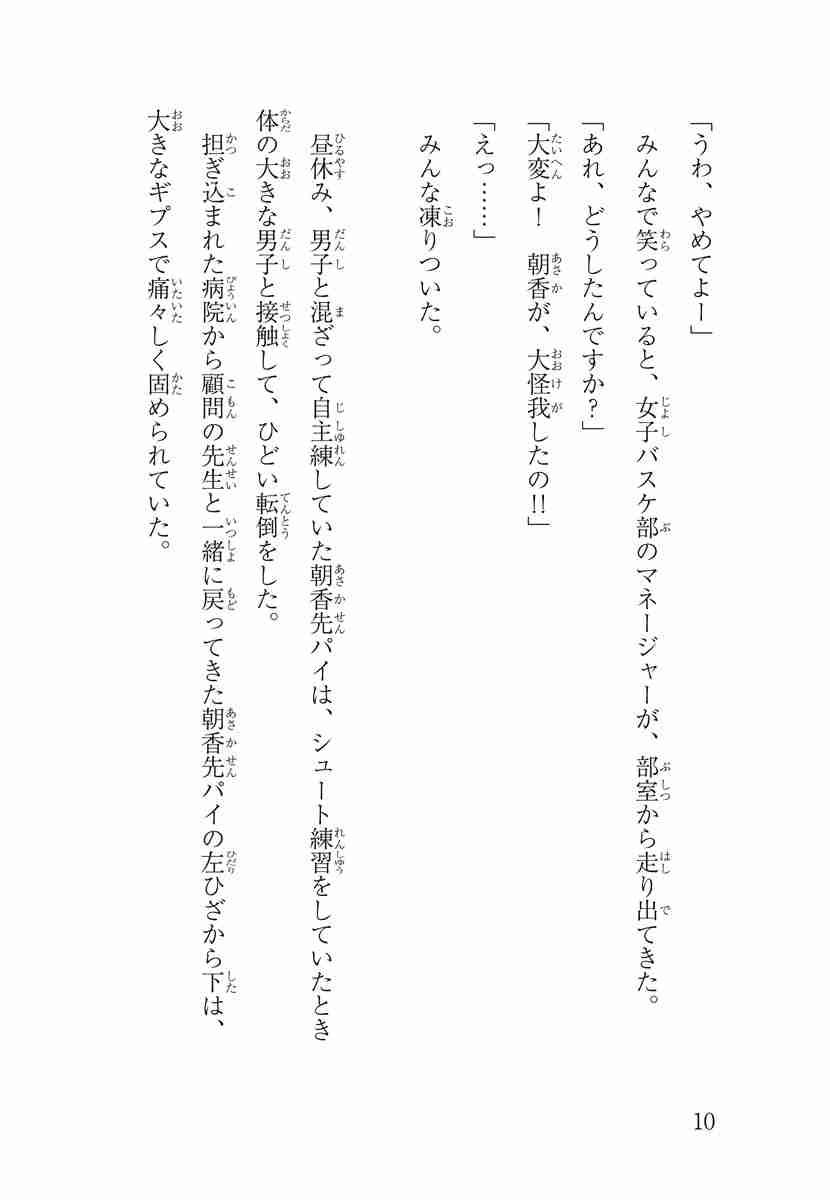 「うわ、やめてよー」
みんなで笑っていると、女子バスケ部のマネージャーが、部室から走り出てきた。
「あれ、どうしたんですか？」
「大変よ！　朝香が、大怪我したの!!」
「えっ……」
みんな凍りついた。
昼休み、男子と混ざって自主練していた朝香先パイは、シュート練習をしていたとき
体の大きな男子と接触して、ひどい転倒をした。
担ぎ込まれた病院から顧問の先生と一緒に戻ってきた朝香先パイの左ひざから下は、
大きなギプスで痛々しく固められていた。
10